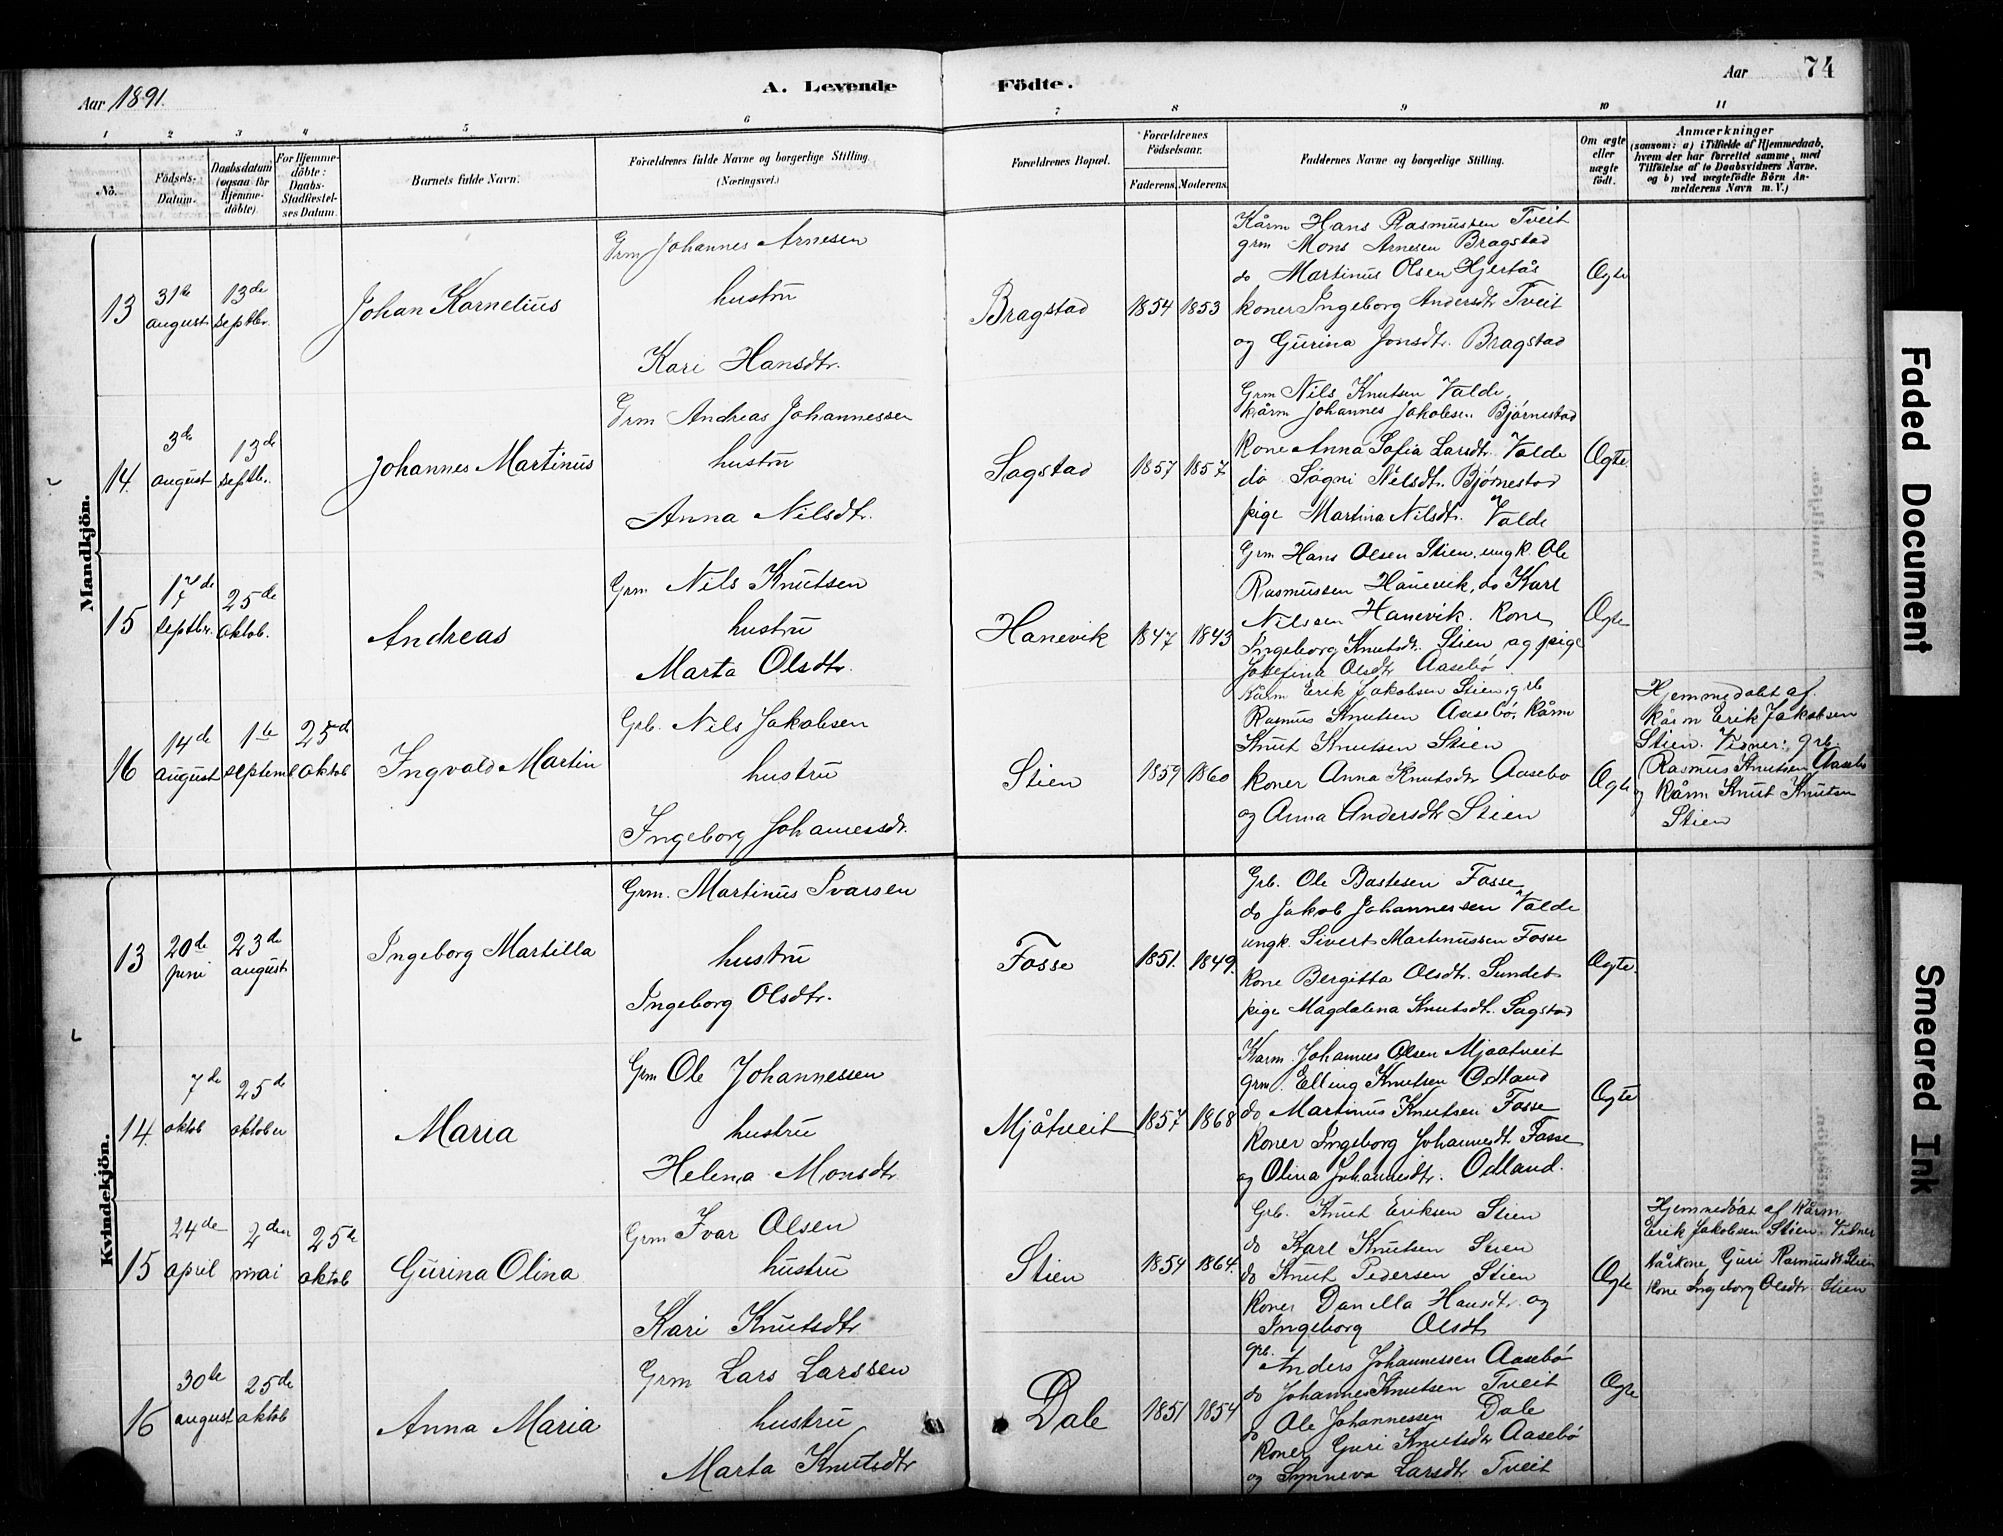 Aar 1891.
A. Levende Födte.
Aar 74
1 2 3 4 5 6 7 8 9 10 11
No.
Födsels-Datum.
Daabsdatum (ogsaa for Hjemmedöbte).
For Hjemmedöbte: Daabs-Stadfæstelses Datum.
Barnets fulde Navn.
Forældrenes fulde Navne og borgerlige Stilling.
(Næringsvei.)
Forældrenes Bopæl.
Forældrenes Födselsaar.
Faderens. Moderens.
Faddernes Navne og borgerlige Stilling.
Om ægte eller uægte födt.
Anmærkninger
(saasom: a) i Tilfælde af Hjemmedaab, hvem der har forrettet samme, med Tilföielse af to Daabsvidners Navne, og b) ved uægtefödte Börn Anmelderens Navn m. V.)
Mandkjön.
13
31te august
13de septbr.
Johan Kornelius
Grm Johannes Arnesen
hustru
Kari Hansdtr.
Bragstad
1854 1853
Kårm Hans Rasmussen Tveit
grm Mons Arnesen Bragstad
do Martinus Olsen Hjertås
koner Ingeborg Andersdtr Tveit
og Gurina Jonsdtr. Bragstad
Ægte
14.
3de august
13de septbr.
Johannes Martinus
Grm Andreas Johannessen
hustru
Anna Nilsdtr.
Sagstad
1857 1857
Grm Nils Knutsen Valde,
kårm Johannes Jakobsen Bjørnestad
Kone Anna Sofia Larsdtr. Valde
do Søgni Nilsdtr. Bjørnestad
pige Martina Nilsdtr. Valde
Ægte.
15
17de septbr.
25de oktob.
Andreas
Grm Nils Knutsen
hustru
Marta Olsdtr.
Hanevik
1847 1843
Grm Hans Olsen Stien, ungk. Ole
Rasmussen Hanevik, do Karl
Nilssen Hanevik. Kone
Ingeborg Knutsdtr. Stien og pige
Josefina Olsdtr Aasebø
Ægte
16
14de august
1te septemb
25de oktob
Ingvald Martin
Grb. Nils Jakobsen
hustru
Ingeborg Johannesdtr.
Stien
1859 1860
Kårm Erik Jakobsen Stien, grb
Rasmus Knutsen Aasebø, kårm
Knut Knutsen Stien
koner Anna Knutsdtr Aasebø
og Anna Andersdtr Stien
Ægte
Hjemmedøbt af
kårm Erik Jakobsen
Stien. Vidner: grb
Rasmus Knutsen Aasebø
og kårm Knut Knutsen
Stien
Kvindekjön.
13
20de juni
23de august
Ingeborg Martilla
Grm. Martinus Ivarsen
hustru
Ingeborg Olsdtr.
Fosse
1851. 1849.
Grb. Ole Bastesen Fosse
do Jakob Johannessen Valde
ungk. Sivert Martinussen Fosse
Kone Bergitta Olsdtr. Sundet
pige Magdalena Knutsdtr. Sagstad
Ægte.
14.
7de oktob
25de oktober
Maria
Grm Ole Johannessen
hustru
Helena Monsdtr
Mjåtveit
1857 1868
Karm. Johannes Olsen Mjaatveit
grm. Elling Knutsen Odland
do Martinus Knutsen Fosse
Koner Ingeborg Johannesdt. Fosse
og Olina Johannesdtr. Odland.
Ægte
15
24de april
2den mai
25te oktob
Gurina Olina
Grm Ivar Olsen
hustru
Kari Knutsdtr
Stien
1854 1864.
Grb. Knut Eriksen Stien
do Karl Knutsen Stien
do Knut Pedersen Stien
Koner Danella Hansdtr. og
Ingeborg Olsdt
Ægte
Hjemmedøbt af kårm
Erik Jakobsen Stien. Vidner
kårkone Guri Rasmusdt Stien
Kone Ingeborg Olsdtr. Stien
16
30te august
25de oktob
Anna Maria
Grm Lars Larssen
hustru
Marta Knutsdtr
Dale
1851 1854
grb. Anders Johannessen Aasebø
do Johannes Knutsen Tveit
do Ole Johannessen Dale
Koner Guri Knutsdtr Aasebø
og Synneva Larsdtr Tveit
Ægte
Faded Document
Smeared Ink